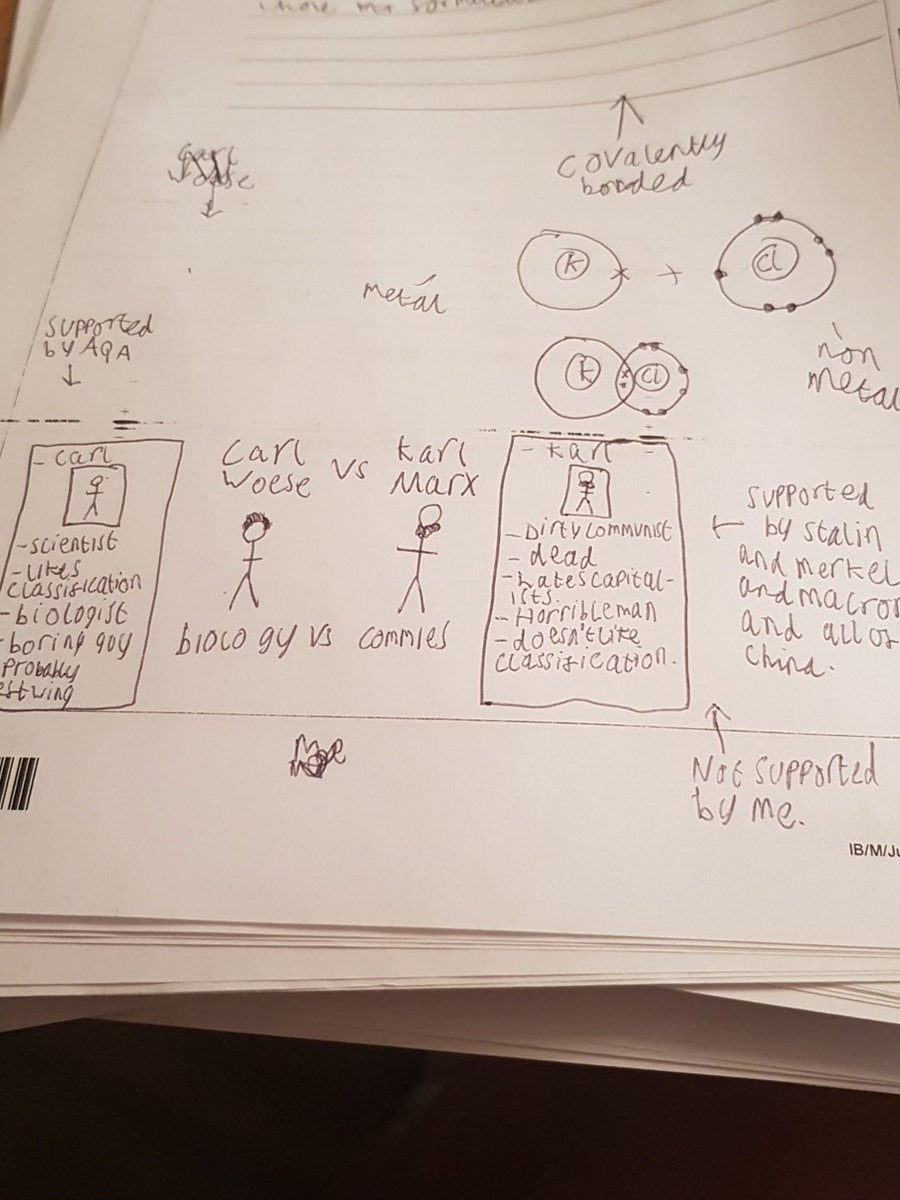 Covalently
bonded
K
+
Cl
metal
non
metal
K
Cl
supported
by AQA
Carl
Woese
vs
Karl
Marx
biology vs commies
- Carl
- scientist
- likes
classification
- biologist
- boring guy
probably
- Karl
- Dirty communist
- dead
- hates capital-
ists.
- Horrible man
- doesn't like
classification.
supported
by stalin
and merkel
and macron
and all of
China.
Not supported
by me.
IB/M/Ju